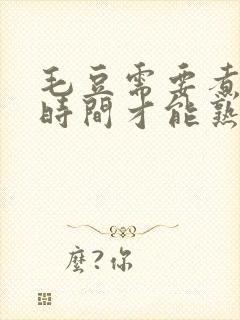 毛豆需要煮
時間才能熟
麼?你